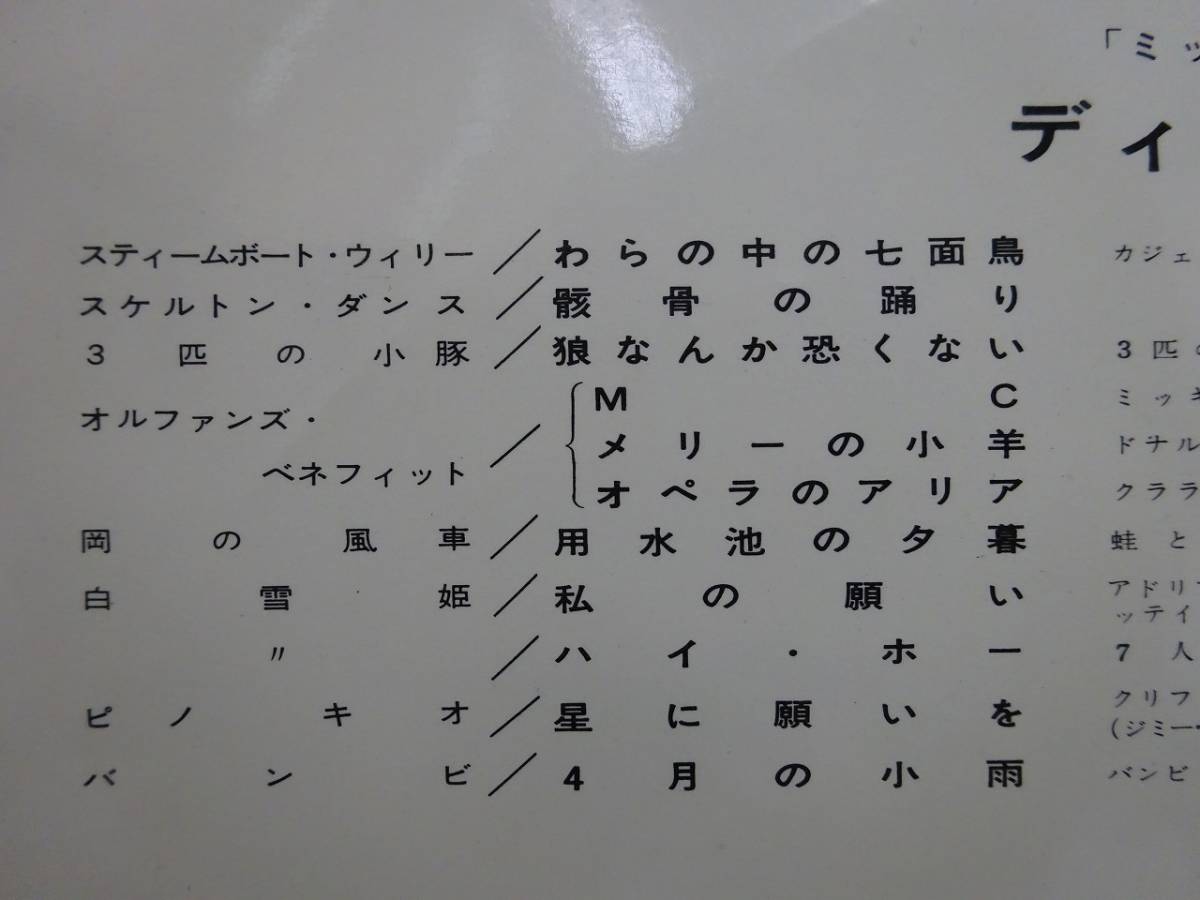 「ミッ
ディ
スティームボート・ウィリー／わらの中の七面鳥 カジェ
スケルトン・ダンス／骸骨の踊り
3匹の小豚／狼なんか恐くない 3匹の
オルファンズ・
ベネフィット／
MC ミッキ
メリーの小羊 ドナル
オペラのアリア クララ
岡の風車／用水池の夕暮 蛙と
白雪姫／私の願い アドリア
ッティ
〃／ハイ・ホー 7人
ピノキオ／星に願いを クリフ
(ジミー・
バンビ／4月の小雨 バンビ